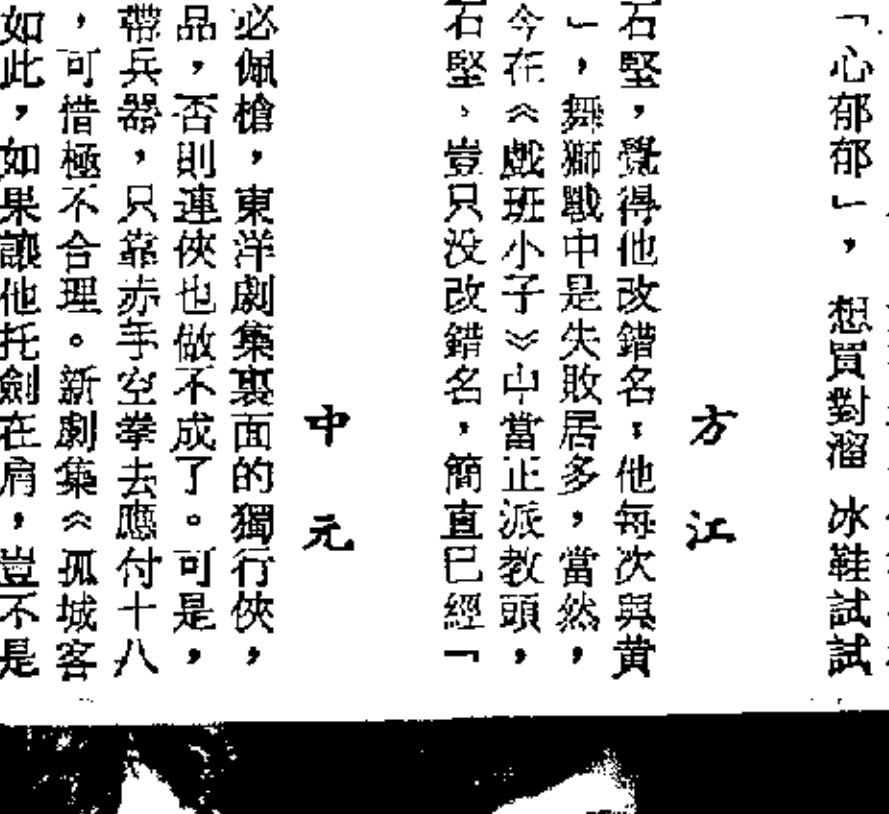 「心郁郁」，想買對溜冰鞋試試
方江
石堅，覺得他改錯名，他每次與黄
」，舞獅戰中是失敗居多，當然，
今在《戲班小子》中當正派教頭，
石堅、豈只没改錯名，簡直已經「
中元
必佩槍，東洋劇集裏面的獨行俠，
品，否則連俠也做不成了。可是，
帶兵器，只靠赤手空拳去應付十八
，可惜極不合理。新劇集《孤城客
如此，如果讓他托劍在肩，豈不是